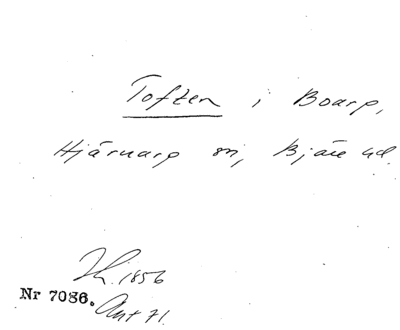 Toften i Boarp,
Hjärnarp sn, Bjäre hd.
1856
Nr 7086.
Ant 71.